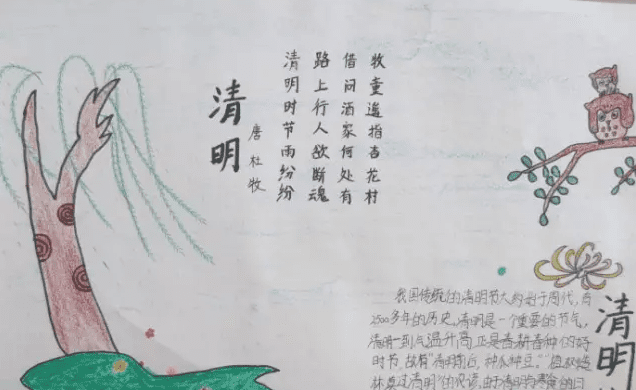 清明
唐 杜牧
清明时节雨纷纷
路上行人欲断魂
借问酒家何处有
牧童遥指杏花村
清明
我国传统的清明节大约始于周代,有
2500多年的历史。清明是一个重要的节气,
清明一到气温升高正是春耕春种的好
时节,故有"清明前后,种瓜种豆"